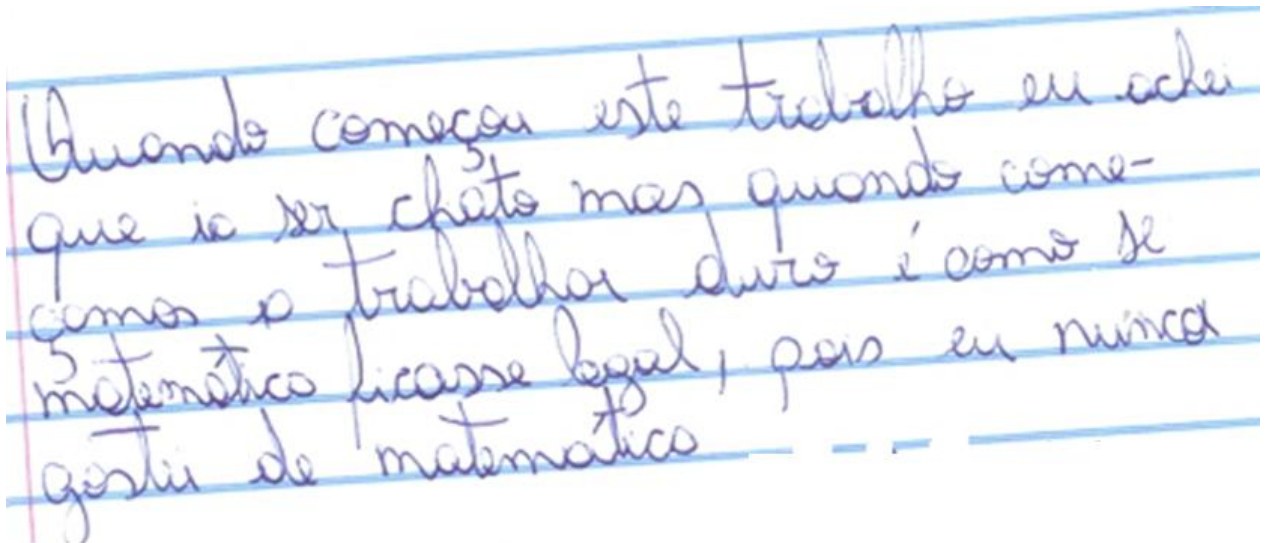 Quando começou este trabalho eu achei
que ia ser chato mas quando come-
çamos a trabalhar duro é como se
matemática ficasse legal, pois eu nunca
gostei de matemática